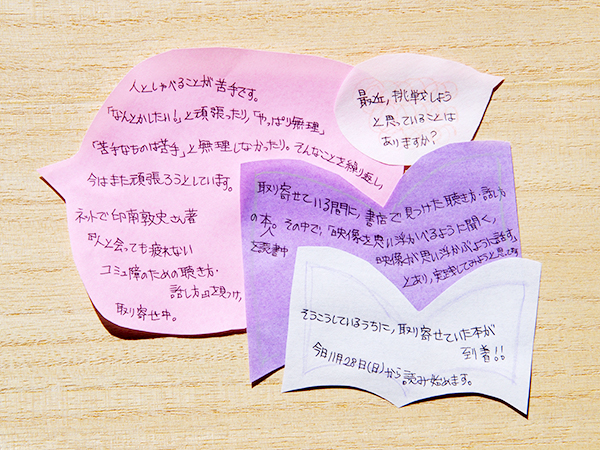 最近、挑戦しよう
と思っていることは
ありますか?
人としゃべることが苦手です。
「なんとかしたい!」と頑張ったり、「やっぱり無理」
「苦手なものは苦手」と無理しなかったり。そんなことを繰り返し
今はまた頑張ろうとしています。
ネットで印南敦史さん著
『人と会っても疲れない
コミュ障のための聴き方・
話し方』を見つけ、
取り寄せ中。
取り寄せている間に、書店で見つけた聴き方・話し方
の本。その中で、「映像を思い浮かべるように聞く、
映像が思い浮かぶように話す」
とあり、実践してみようと思ってます
と読書中
そうこうしているうちに、取り寄せていた本が
到着!!
今日11月28日(日)から読み始めます。